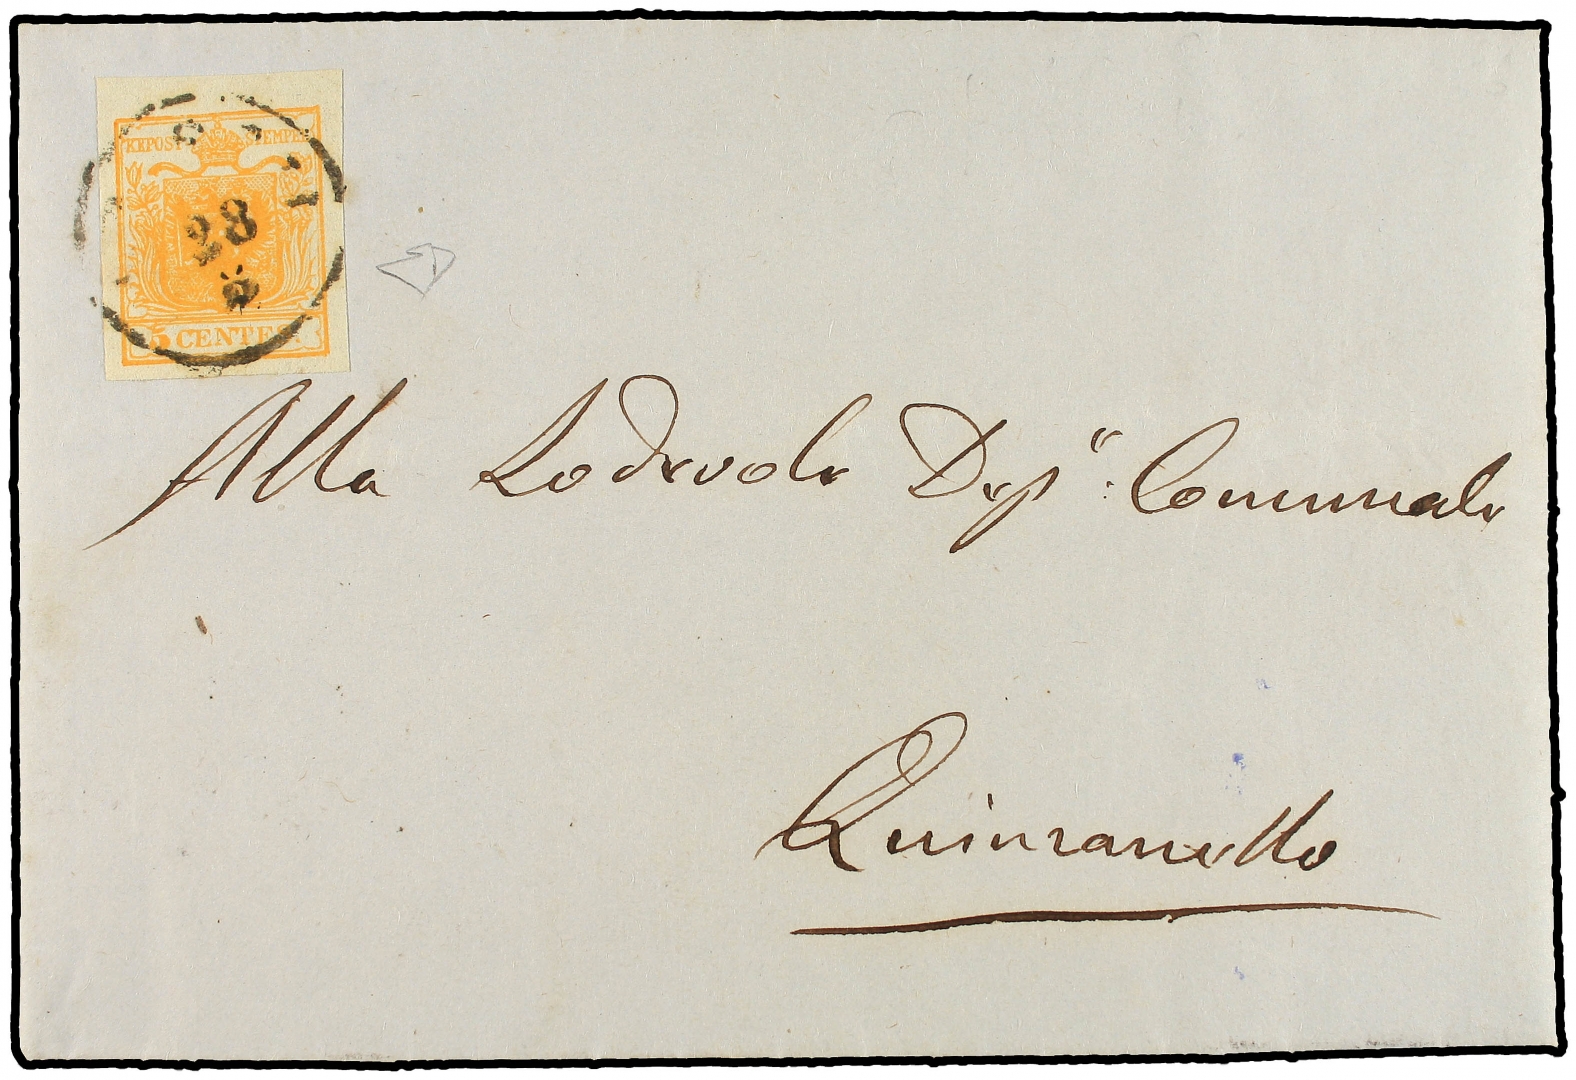 KKPOST STEMPEL
28
5 CENTES
Alla Lodevole Dep.ⁿᵉ Comunale
Quinzanello